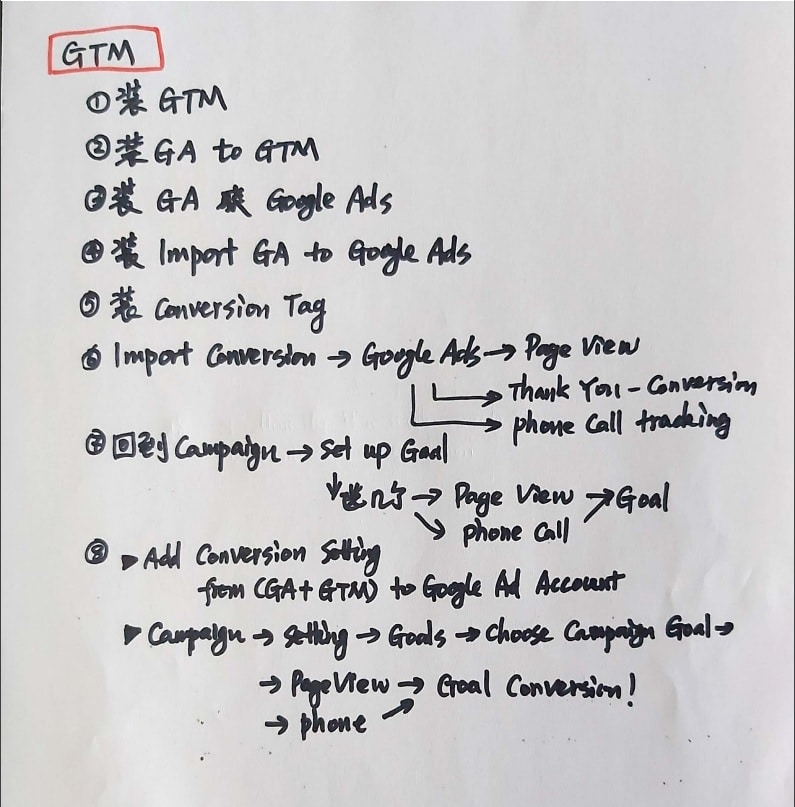 GTM
① 装 GTM
② 装 GA to GTM
③ 装 GA 联 Google Ads
④ 装 Import GA to Google Ads
⑤ 装 Conversion Tag
⑥ Import Conversion → Google Ads → Page View
→ Thank You - Conversion
→ phone Call tracking
⑦ 回到 Campaign → Set up Goal
↓ → Page View → Goal
↘ phone Call
⑧ ▶ Add Conversion Setting
from (GA + GTM) to Google Ad Account
▶ Campaign → Setting → Goals → Choose Campaign Goal →
→ PageView → Goal Conversion!
→ phone